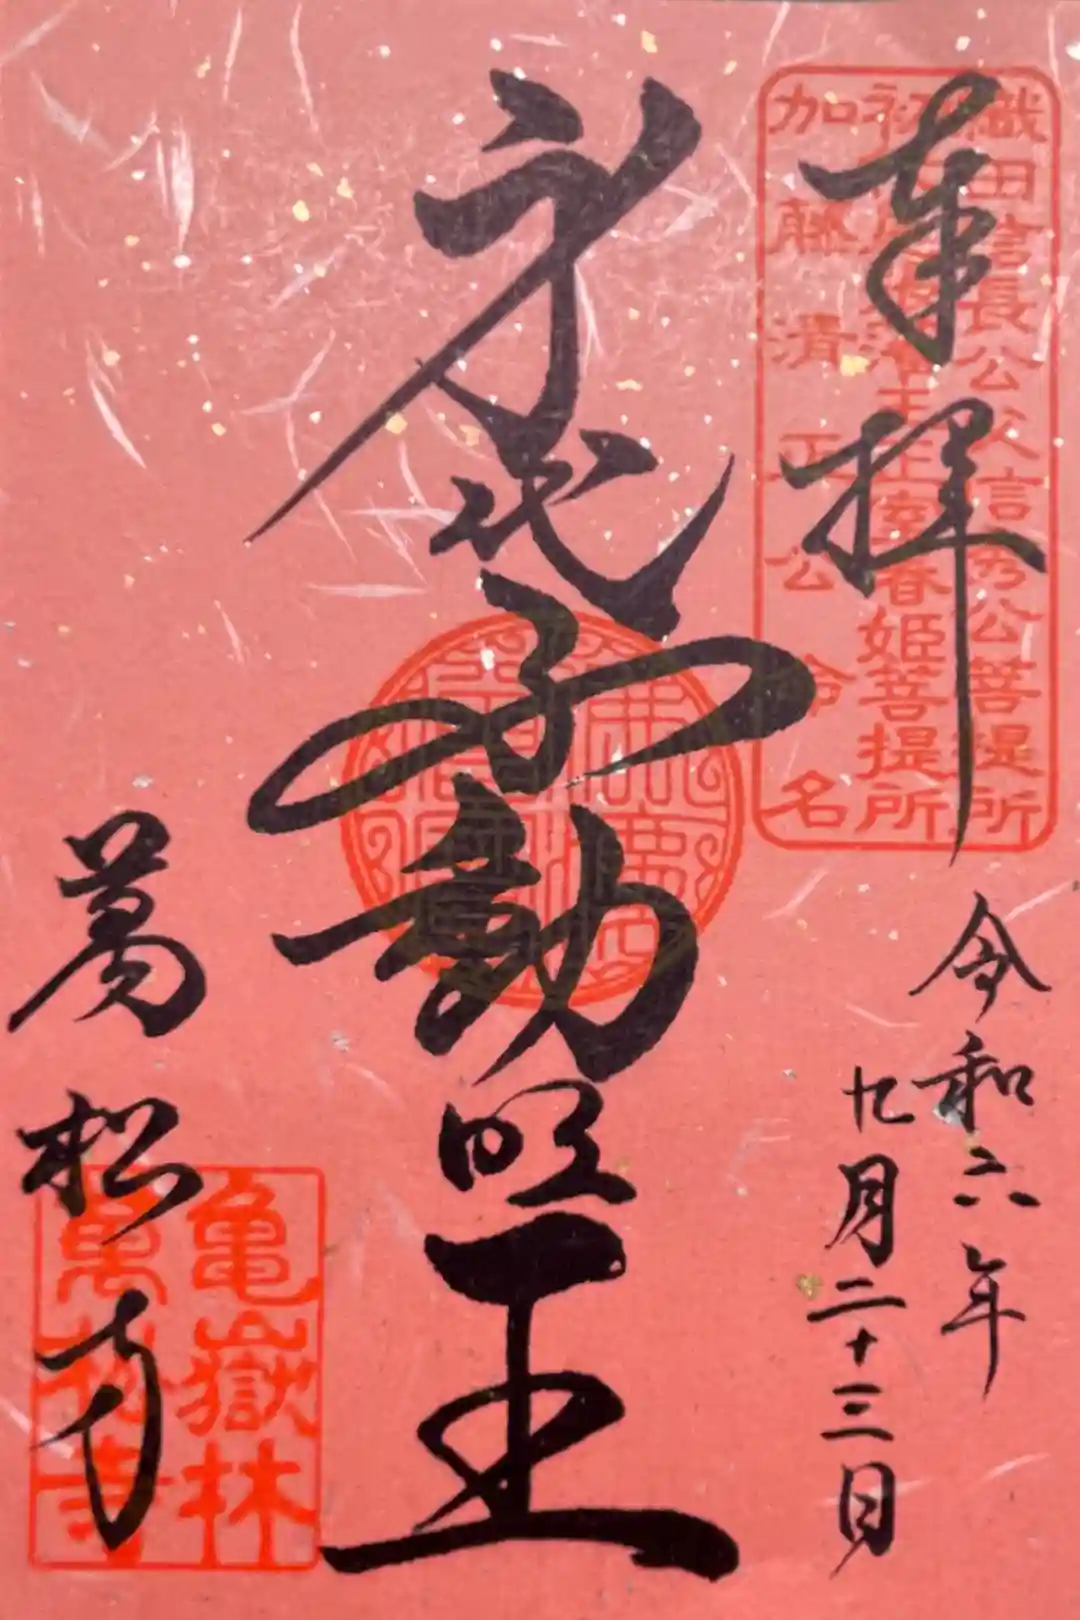 奉拝
織田信長公父信秀公菩提所
初代尾張藩主正室春姫菩提所
加藤清正公命名
令和六年
九月二十三日
身代不動明王
萬松寺
亀嶽林
萬松寺